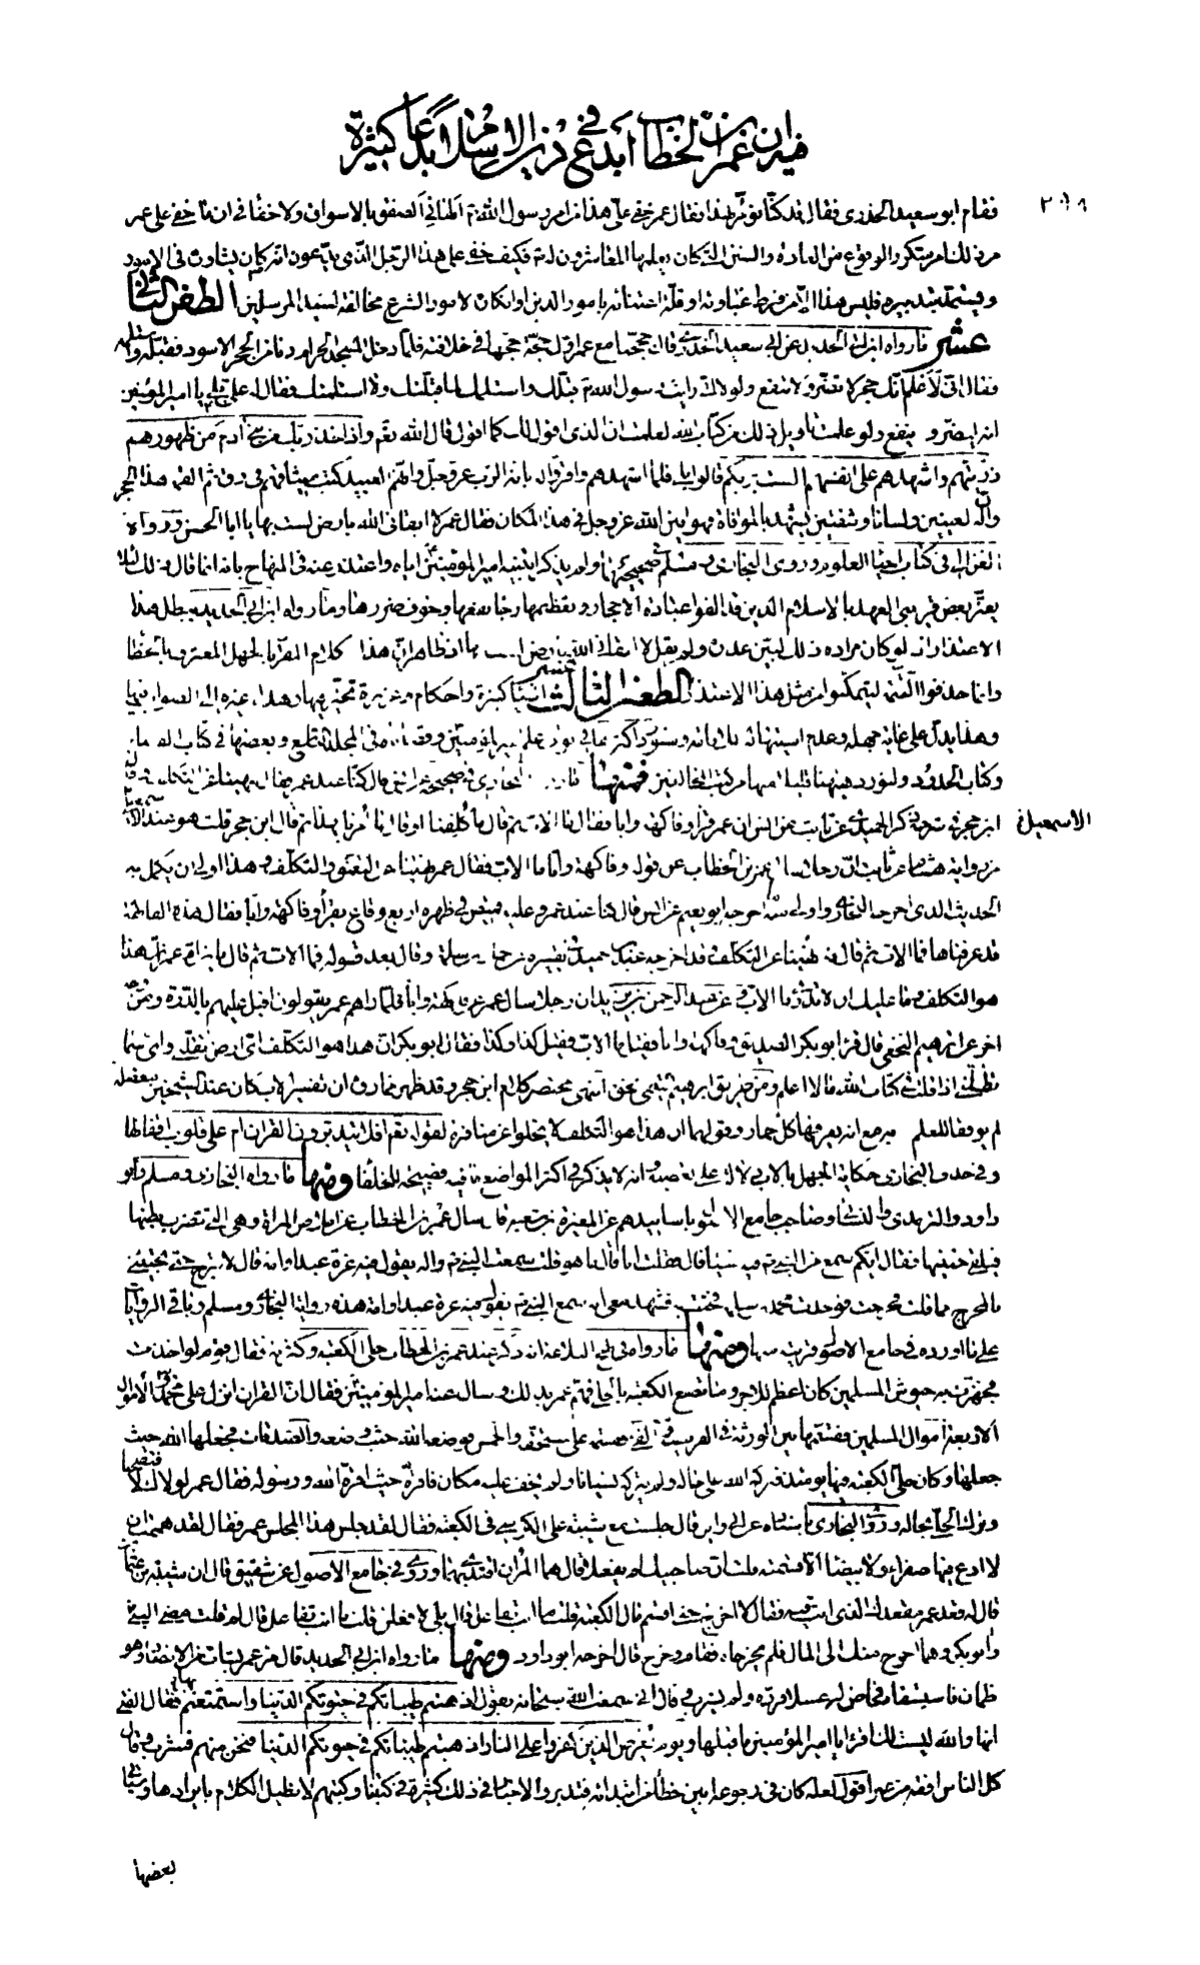 فيه ان عمر بن الخطاب أبدع في دين الاسلام بدعا كثيرة
٢٩٨
فقام ابو سعيد الخدري فقال قد كنا نؤمر بهذا فقال عمر خفي علي هذا من امر رسول الله ألهاني الصفق بالاسواق ولا خفاء في ان ما خفي على عمر
من ذلك امر متكرر الوقوع من العادة والسنن التي كان يعلمها المعاشرون له فكيف خفي على هذا الرجل الذي يدعون انه كان يشاور في الامور
ويستمد بتدبيره فليس هذا الا من فرط غباوته او قلة اعتنائه بامور الدين او انكاره لامور الشرع مخالفة لسيد المرسلين الطعن الثاني
عشر ما رواه ابن ابي الحديد عن ابي سعيد الخدري قال حججنا مع عمر اول حجة حجها في خلافته فلما دخل المسجد الحرام دنا من الحجر الاسود فقبله واستلمه
فقال اني لأعلم انك حجر لا تضر ولا تنفع ولولا اني رايت رسول الله قبلك واستلمك لما قبلتك ولا استلمتك فقال له علي بلى يا امير المؤمنين
انه ليضر وينفع ولو علمت تاويل ذلك من كتاب الله لعلمت ان الذي اقول لك كما اقول قال الله تعالى واذ اخذ ربك من بني آدم من ظهورهم
ذريتهم واشهدهم على انفسهم الست بربكم قالوا بلى فلما اشهدهم واقروا له بانه الرب عز وجل وانهم العبيد كتب ميثاقهم في رق ثم القمه هذا الحجر
وان له لعينين ولسانا وشفتين ليشهد بالموافاة فهو امين الله عز وجل في هذا المكان فقال عمر لا ابقاني الله بارض لست بها يا ابا الحسن ورواه
الغزالي في كتاب احياء العلوم وروى البخاري ومسلم في صحيحيهما ولم يذكرا تنبيه امير المؤمنين اياه واعتذر عنه في المنهاج بانه انما قال ذلك لئلا
يغتر بعض قريبي العهد بالاسلام الذين قد الفوا عبادة الاحجار وتعظيمها رجاء نفعها وخوف ضررها وما رواه ابن ابي الحديد يبطل هذا
الاعتذار اذ لو كان مراده ذلك لبين عذره ولم يقل لا ابقاني الله بارض لست بها اذ ظاهر ان هذا كلام المقر بالجهل المعترف بالخطا
وانما حذفوا التتمة ليتمكنوا من مثل هذا الاعتذار الطعن الثالث عشر اشياء كثيرة واحكام غزيرة تحير فيها وهداه غيره الى الصواب فيها
وهذا يدل على غاية جهله وعدم استيهاله للامامة
وكتاب الحدود ولنورد هيهنا قليلا منها من كتب المخالفين فمنها البخاري في صحيحه عن انس قال كنا عند عمر فقال نهينا عن التكلف
ابن حجر في شرحه ذكر الحميدي عن ثابت عن انس ان عمر قرا وفاكهة وابا فقال ما الاب ثم قال ما كلفنا او قال ما امرنا بهذا ثم قال ابن حجر قلت هو عند الاسمعيلي
من رواية هشام عن ثابت ان رجلا سال عمر بن الخطاب عن قوله وفاكهة وابا ما الاب فقال عمر نهينا عن التعمق والتكلف وهذا اولى ان يكمل به
الحديث الذي اخرجه البخاري واولى منه ما اخرجه ابو نعيم عن انس قال كنا عند عمر وعليه قميص في ظهره اربع رقاع يقرأ وفاكهة وابا فقال هذه الفاكهة
قد عرفناها فما الاب ثم قال مه نهينا عن التكلف وقد اخرجه عبد بن حميد في تفسيره عن حماد بن سلمة وقال بعد قوله فما الاب ثم قال يا بن ام عمر ان هذا
هو التكلف وما عليك ان لا تدري ما الاب وعن عبد الرحمن بن يزيد ان رجلا سال عمر عن فاكهة وابا فلما راهم عمر يقولون اقبل عليهم بالدرة ومن وجه
اخر عن ابراهيم النخعي قال قرأ ابو بكر الصديق وفاكهة وابا فقيل ما الاب فقيل كذا وكذا فقال ابو بكر ان هذا هو التكلف اي ارض تقلني واي سماء
تظلني اذا قلت في كتاب الله ما لا اعلم ومن طريق ابراهيم التيمي نحوه انتهى مختصر كلام ابن حجر وقد ظهر مما رووه ان تفسير الاب كان عند الشيخين معضلة
لم يوفقا للعلم به مع انه يعرفها كل حمار وقولهما ان هذا هو التكلف لا يخلوا عن منافرة لقوله تعالى افلا يتدبرون القران ام على قلوب اقفالها
وفي حذف البخاري حكاية الجهل بالاب دلالة على تعصبه وانه لا يذكر في اكثر المواضع ما فيه فضيحة للخلفاء ومنها ما رواه البخاري ومسلم وابو
داود والترمذي والنسائي وصاحب جامع الاصول باسانيدهم عن المغيرة بن شعبة قال سال عمر بن الخطاب عن املاص المراة وهي التي تضرب بطنها
فيلقى جنينها فقال ايكم سمع من النبي فيه شيئا قال فقلت انا قال ما هو قلت سمعت النبي يقول فيه غرة عبد او امة قال لا تبرح حتى تجيئني
بالمخرج مما قلت فخرجت فوجدت محمد بن مسلمة فجئت به فشهد معي انه سمع النبي يقول فيه غرة عبد او امة هذه رواية البخاري ومسلم وباقي الروايات
على ما اورده في جامع الاصول قريب منها ومنها ما رواه في نهج البلاغة انه ذكر عند عمر بن الخطاب حلي الكعبة وكثرته فقال قوم لو اخذته
فجهزت به جيوش المسلمين كان اعظم للاجر وما تصنع الكعبة بالحلي فهم عمر بذلك وسال عنه امير المؤمنين فقال ان القران انزل على محمد والاموال
الاربعة اموال المسلمين فقسمها بين الورثة في الفرائض والفيء فقسمه على مستحقه والخمس فوضعه الله حيث وضعه والصدقات فجعلها الله حيث
جعلها وكان حلي الكعبة فيها يومئذ فتركه الله على حاله ولم يتركه نسيانا ولم يخف عليه مكان فاقره حيث اقره الله ورسوله فقال عمر لولاك لافتضحنا
وترك الحلي بحاله وروى البخاري باسناده عن ابي وايل قال جلست مع شيبة على الكرسي في الكعبة فقال لقد جلس هذا المجلس عمر فقال لقد هممت ان
لا ادع فيها صفراء ولا بيضاء الا قسمته قلت ان صاحبيك لم يفعلا قال هما المرآن اقتدي بهما وروى في جامع الاصول عن شقيق قال ان شيبة بن عثمان
قال له قعد عمر مقعدك الذي انت فيه فقال لا اخرج حتى اقسم مال الكعبة قلت ما انت بفاعل قال بلى لافعلن قلت ما انت بفاعل قال لم قلت مضى النبي
وابو بكر وهما احوج منك الى المال فلم يخرجاه فقام وخرج قال اخرجه ابو داود ومنها ما رواه ابن ابي الحديد قال مر عمر بشاب من الانصار وهو
ظمان فاستسقاه فخاض له عسلا فرده ولم يشرب وقال اني سمعت الله سبحانه يقول اذهبتم طيباتكم في حيوتكم الدنيا واستمتعتم بها فقال الفتى
انها والله ليست لك اقرأ يا امير المؤمنين ما قبلها ويوم يعرض الذين كفروا على النار اذهبتم طيباتكم في حيوتكم الدنيا فنحن منهم فشرب وقال
كل الناس افقه من عمر اقول لعله كان في رجوعه ابين خطأ من ابتدائه فتدبر والاخبار في ذلك كثيرة في كتبنا وكتبهم لا نطيل الكلام بايرادها وسياتي
بعضها
الاسمعيلي